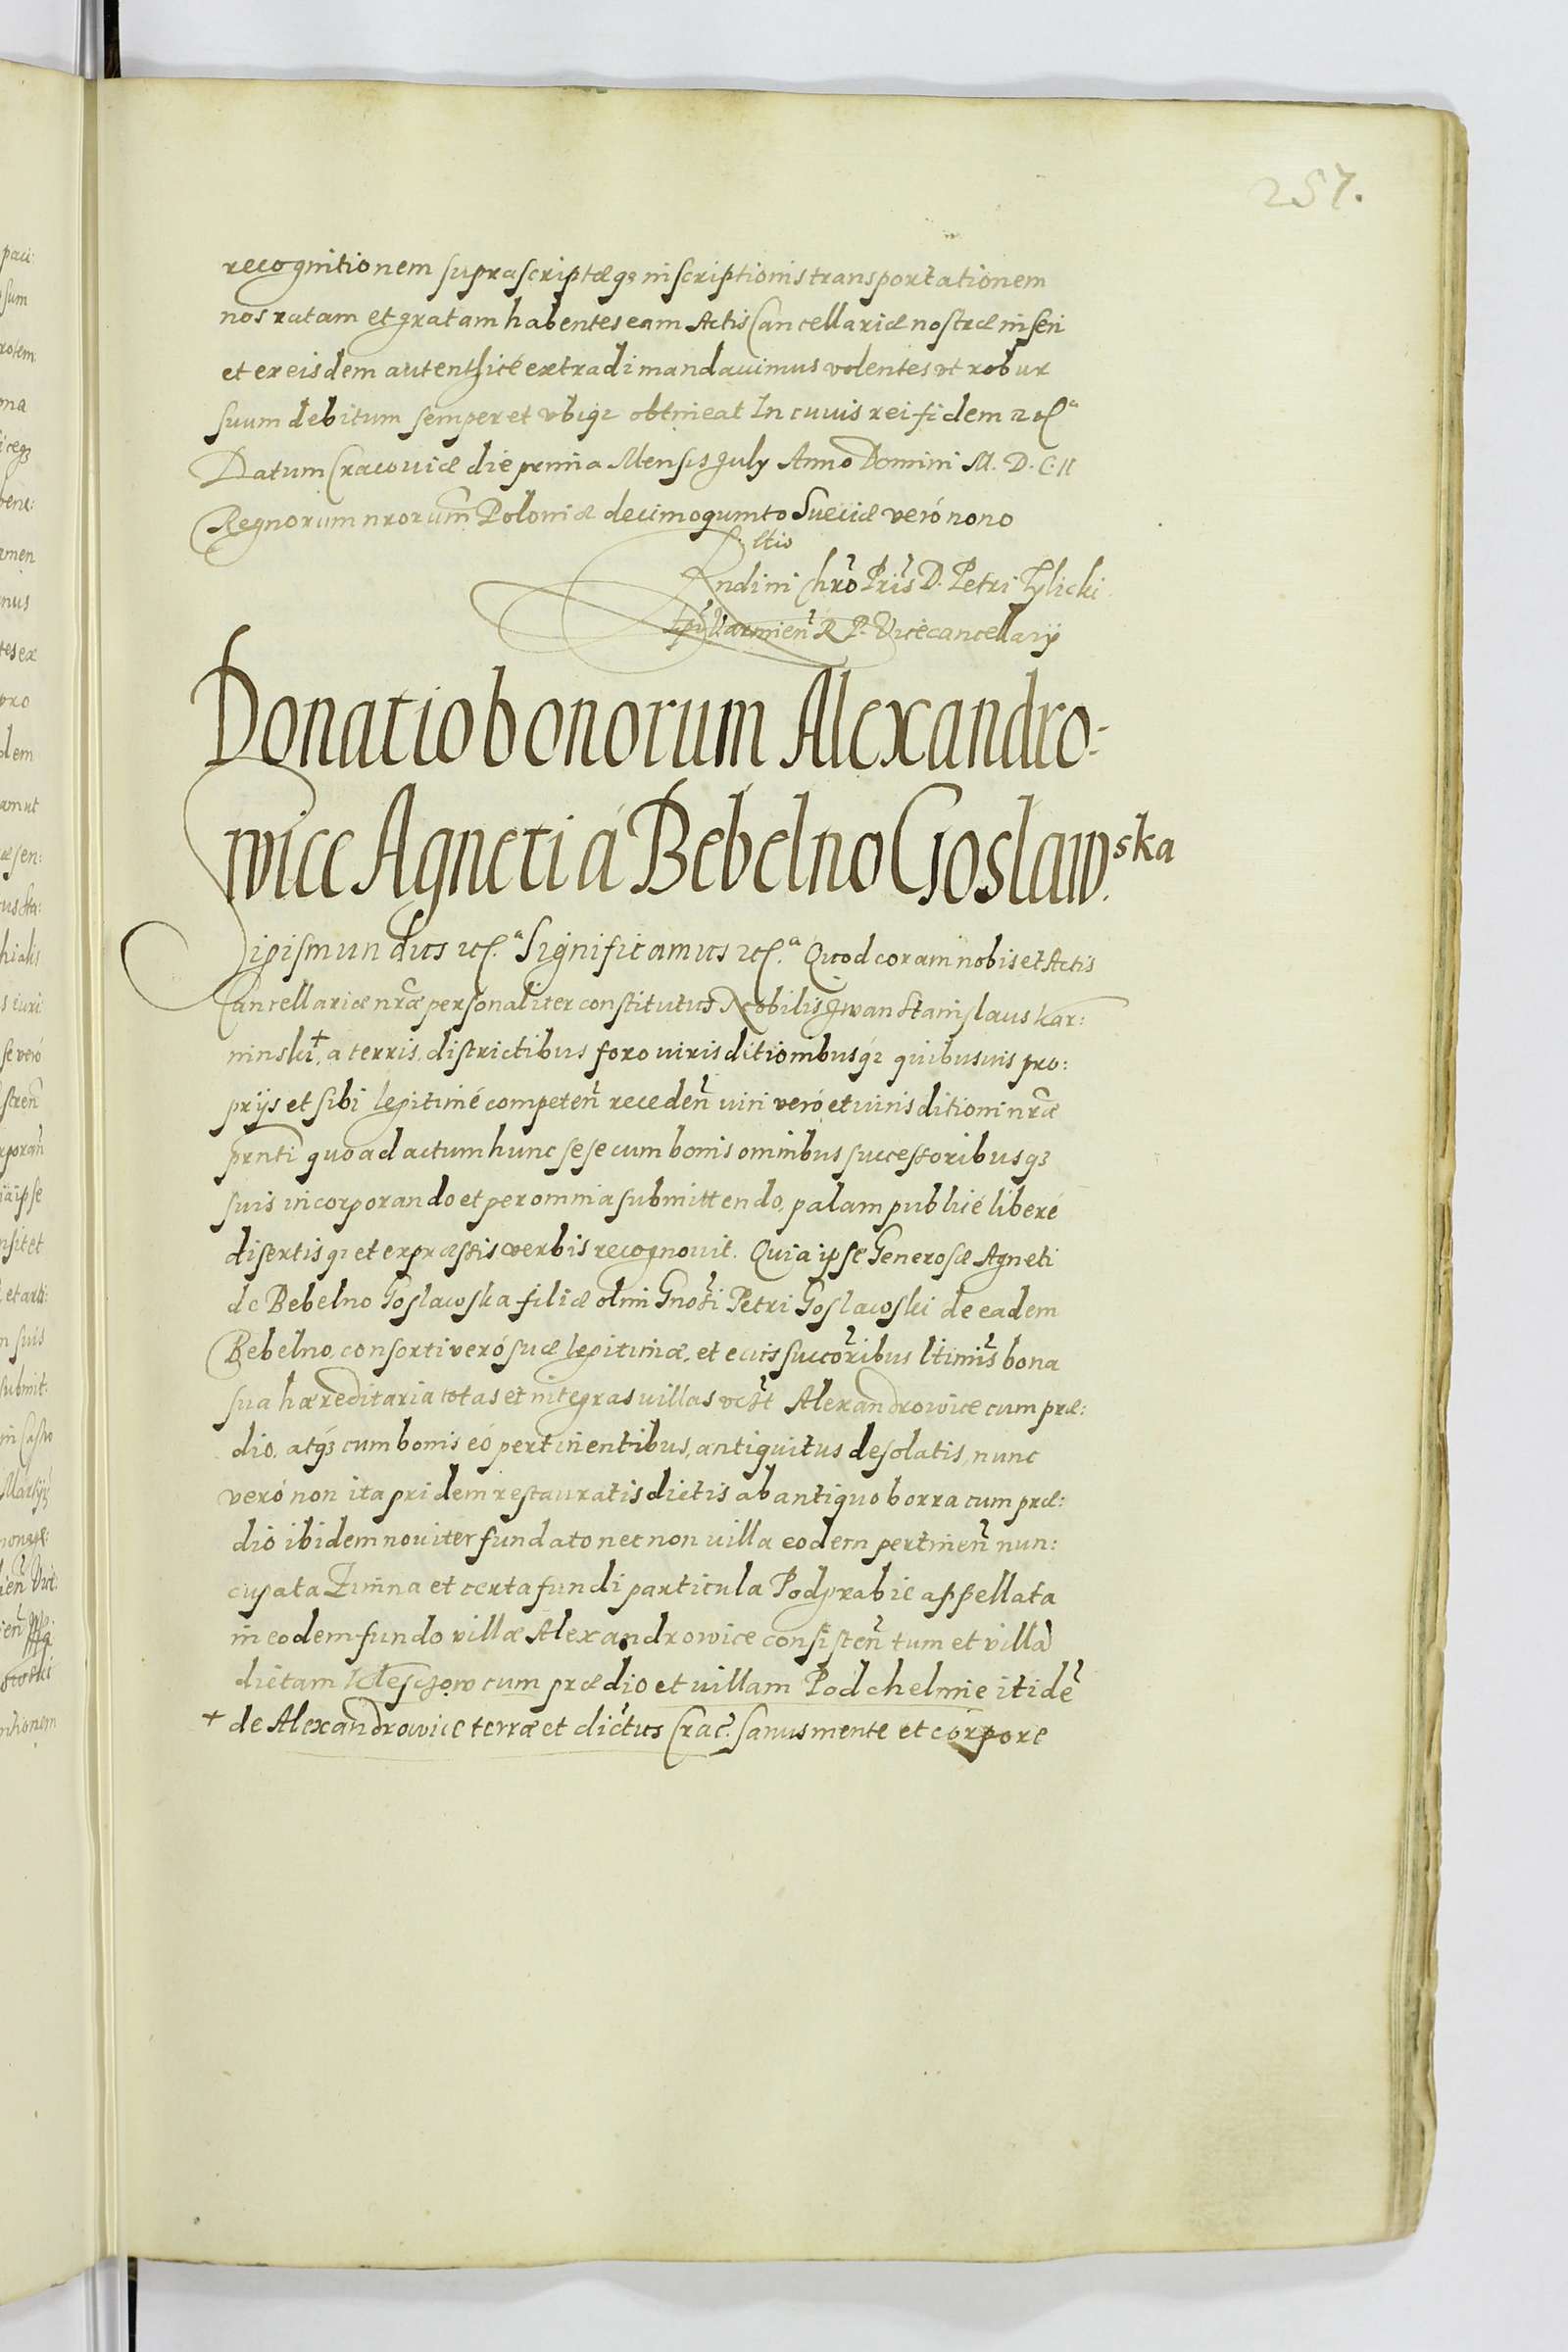 257.
recognitionem suprascriptæq3 inscriptionis transportationem
nos ratam et gratam habentes eam Actis Cancellariæ nostræ inseri
et ex eisdem autenthicè extradi mandauimus volentes vt robur
suum debitum semper et vbiq3 obtineat In cuius rei fidem
Datum Cracouiæ die prima Mensis July Anno Domini M. D. C. II
Regnorum nrorum Poloniæ decimoquinto Sueciæ verò nono
Rndi in Chro Pris D. Petri Tylicki
Epi Varmien R P. Vicecancellarij
Donatio bonorum Alexandro-
wice Agneti á Bebelno Goslaw.ska
Sigismundus Significamus Quod coram nobis et Actis
Cancellariæ nræ personaliter constitutus Nobilis Jwan Stanislaus Kar:
ninski+, a terris, districtibus foro iurisditionibusq3 quibusuis pro:
prijs et sibi legitimé competen receden iuri verò et iurisditioni nræ
prnti quo ad actum hunc sese cum bonis omnibus successoribusq3
suis incorporando et per omnia submittendo, palam publicé liberé
disertisq3 et expræssis verbis recognouit. Quia ipse Generosæ Agneti
de Bebelno Goslawska filiæ olim Gnosi Petri Goslawski de eadem
Bebelno, consorti veró suæ legitimæ, et eius succoribus ltimis bona
sua hæreditaria totas et integras villas Alexandrowice cum præ:
dio, atq3 cum bonis eó pertinentibus, antiquitus desolatis, nunc
veró non ita pridem restauratis dictis ab antiquo borra cum præ:
dio ibidem nouiter fundato nec non villa eodem pertinen nun:
cupata Zimna et certa fundi particula Podgrabie appellata
in eodem fundo villæ Alexandrowice consisten tum et villã
dictam Kleszow cum prædio et villam Podchelmie itidẽ
+ de Alexandrowice terræ et dictus Crac. sanus mente et corpore